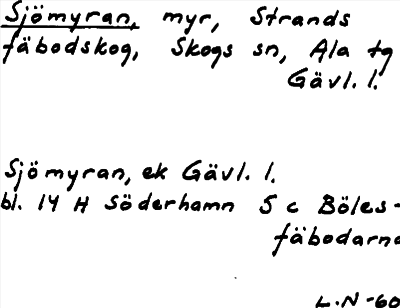 Sjömyran, myr, Strands
fäbodskog, Skogs sn, Ala tg
Gävl. l.
Sjömyran, ek Gävl. l.
bl. 14 H Söderhamn 5 c Böles-
fäbodarna
L.N -60